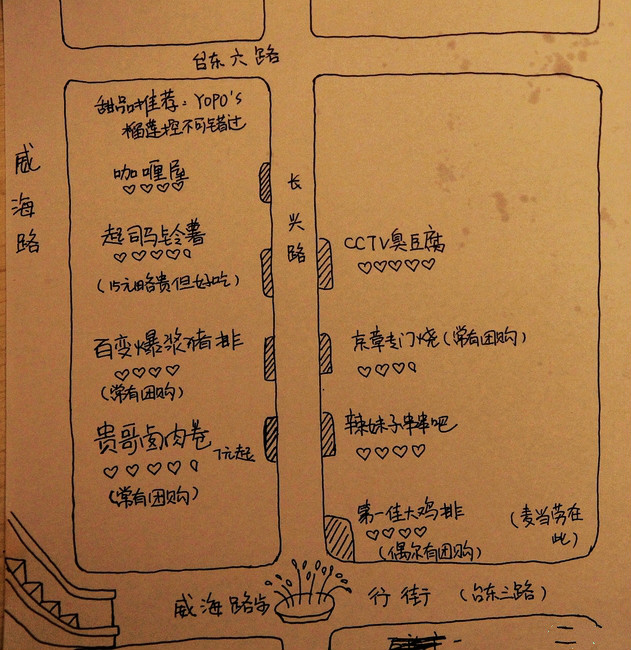 台东六路
甜品推荐：YOPO's
榴莲控不可错过
威海路
咖喱屋
起司马铃薯
(15元略贵但好吃)
百变爆浆猪排
(常有团购)
贵哥卤肉卷
7元起
(常有团购)
长兴路
CCTV臭豆腐
京草专门烧(常有团购)
辣妹子串串吧
第一佳大鸡排
(偶尔有团购)
(麦当劳在
此)
威海路步
行街 (台东三路)